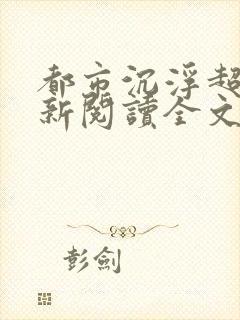 都市沉浮超
新閱讀全文
彭劍